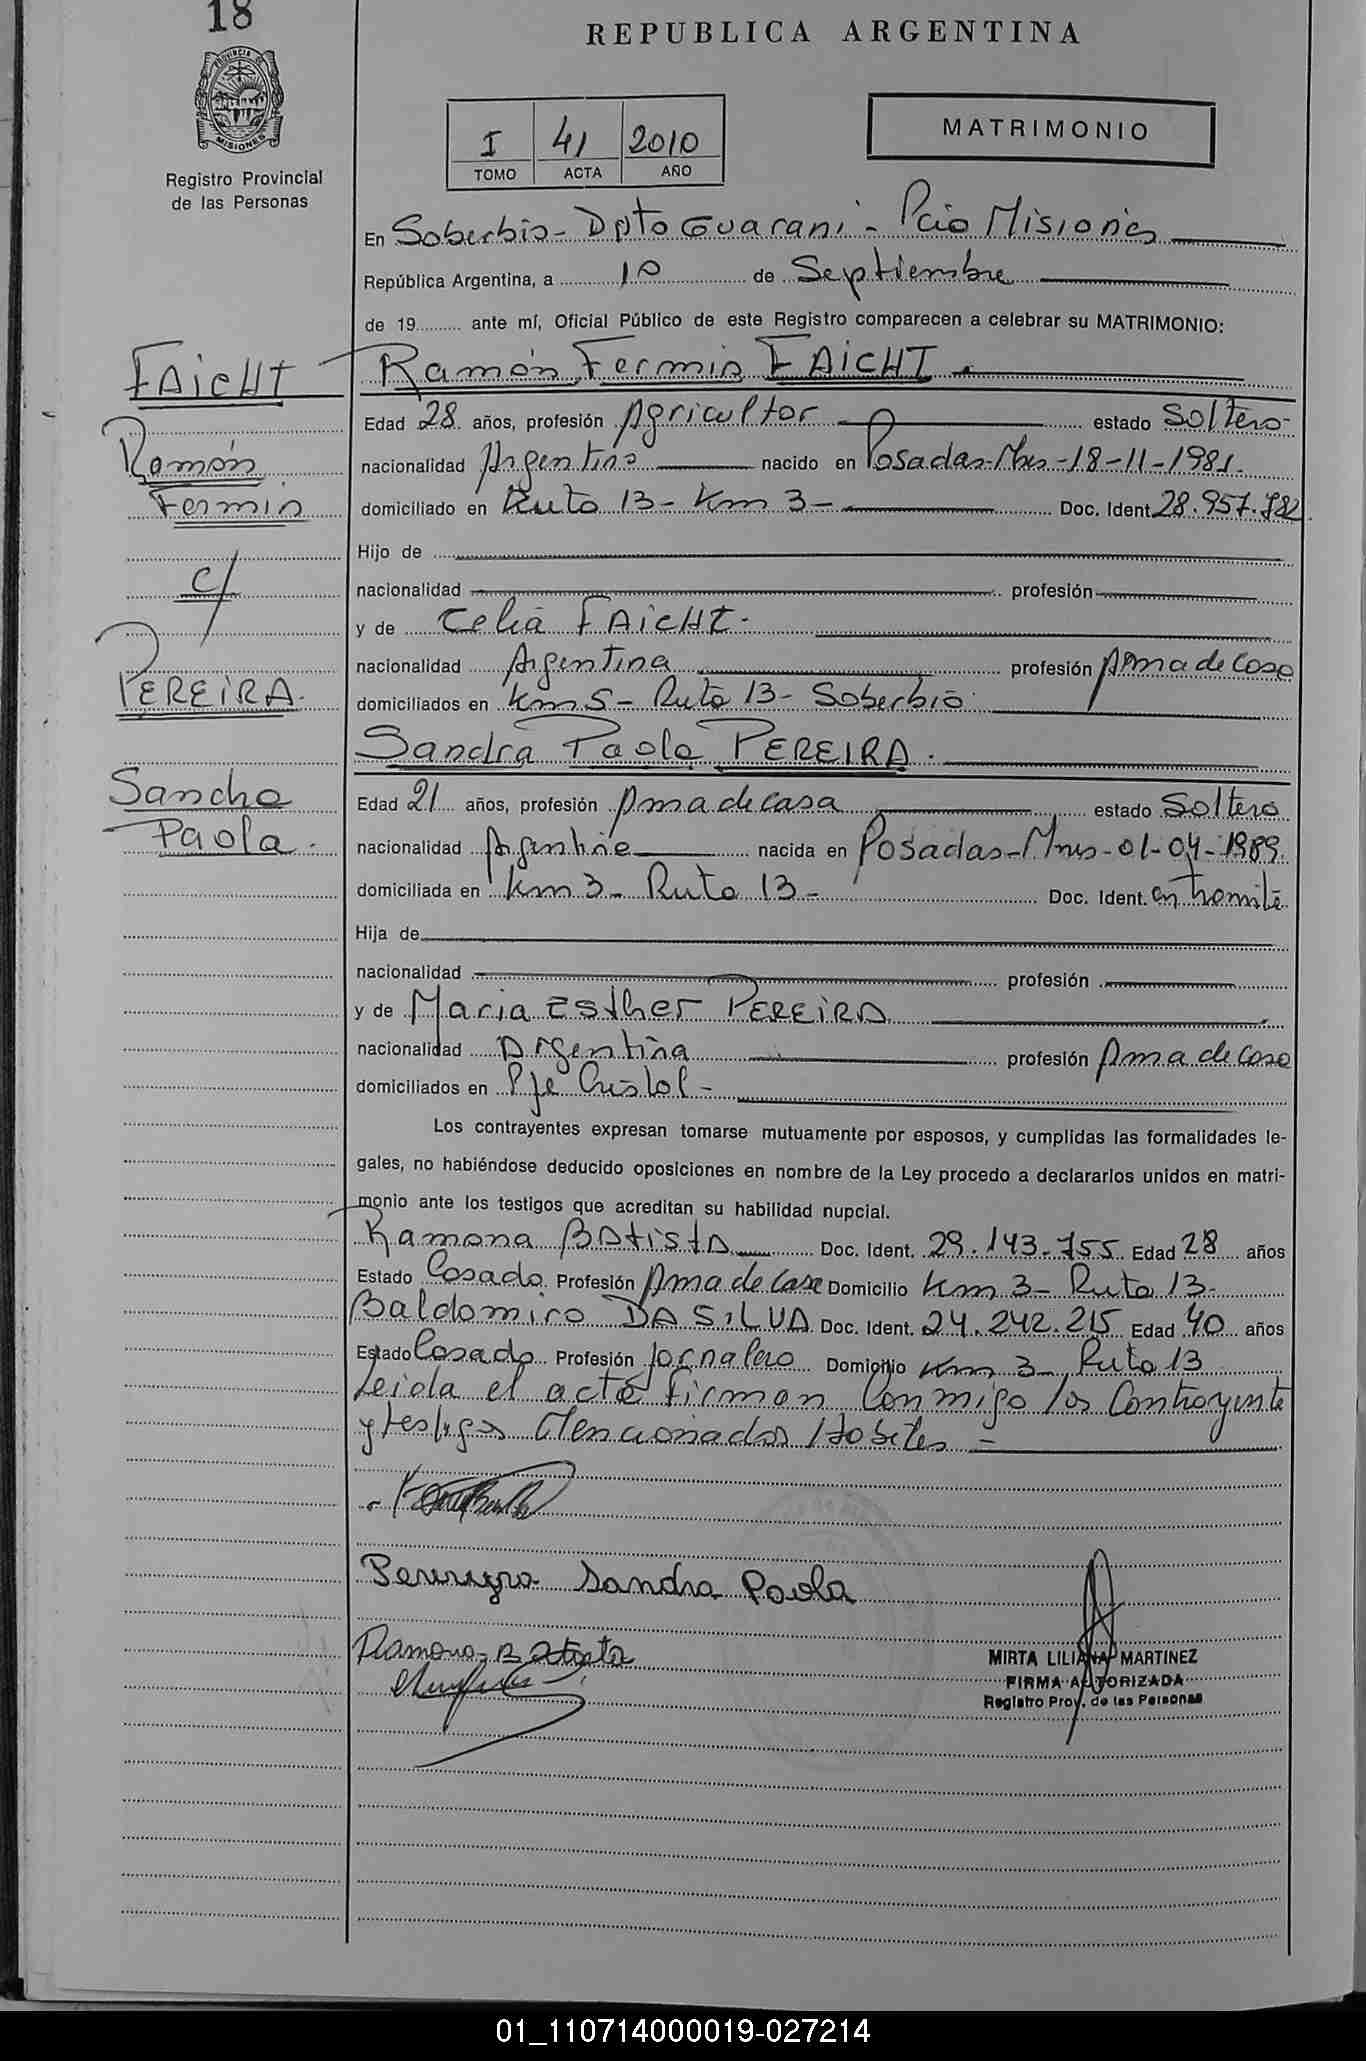 18
REPUBLICA ARGENTINA
PROVINCIA DE
MISIONES
Registro Provincial
de las Personas
I 41 2010
TOMO ACTA AÑO
MATRIMONIO
En Soberbio - Dpto Guarani - Pcia Misiones
República Argentina, a 10 de Septiembre
de 19 ante mí, Oficial Público de este Registro comparecen a celebrar su MATRIMONIO:
FAICHT
Ramón
Fermin
c/
PEREIRA
Sandra
Paola.
Ramón Fermin FAICHT
Edad 28 años, profesión Agricultor estado Soltero-
nacionalidad Argentina nacido en Posadas-Mns-18-11-1981.
domiciliado en Ruta 13 - Km 3 - Doc. Ident. 28.957.782
Hijo de
nacionalidad profesión
y de Celia FAICHT.
nacionalidad Argentina profesión Ama de casa
domiciliados en Km 5 - Ruta 13 - Soberbio
Sandra Paola PEREIRA.
Edad 21 años, profesión Ama de casa estado Soltera
nacionalidad Argentina nacida en Posadas-Mnes-01-04-1989.
domiciliada en Km 3 - Ruta 13 - Doc. Ident. en tramite
Hija de
nacionalidad profesión
y de Maria Esther PEREIRA
nacionalidad Argentina profesión Ama de casa
domiciliados en Pje Cristal -
Los contrayentes expresan tomarse mutuamente por esposos, y cumplidas las formalidades le-
gales, no habiéndose deducido oposiciones en nombre de la Ley procedo a declararlos unidos en matri-
monio ante los testigos que acreditan su habilidad nupcial.
Ramona BAtistA Doc. Ident. 29.143.755 Edad 28 años
Estado Casado Profesión Ama de casa Domicilio Km 3 - Ruta 13-
Baldomiro DA SILVA Doc. Ident. 24.242.215 Edad 40 años
Estado Casado Profesión Jornalero Domicilio Km 3 - Ruta 13
Leida el acta firman conmigo los contrayente
y testigos Mencionados Habiles =
Sandra Paola
Ramona Batista
MIRTA LILIANA MARTINEZ
FIRMA AUTORIZADA
Registro Prov. de las Personas
01_110714000019-027214